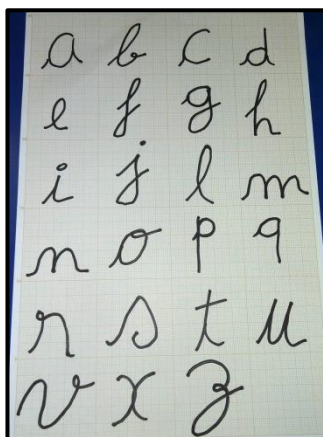 a b c d
e f g h
i j l m
n o p q
r s t u
v x z